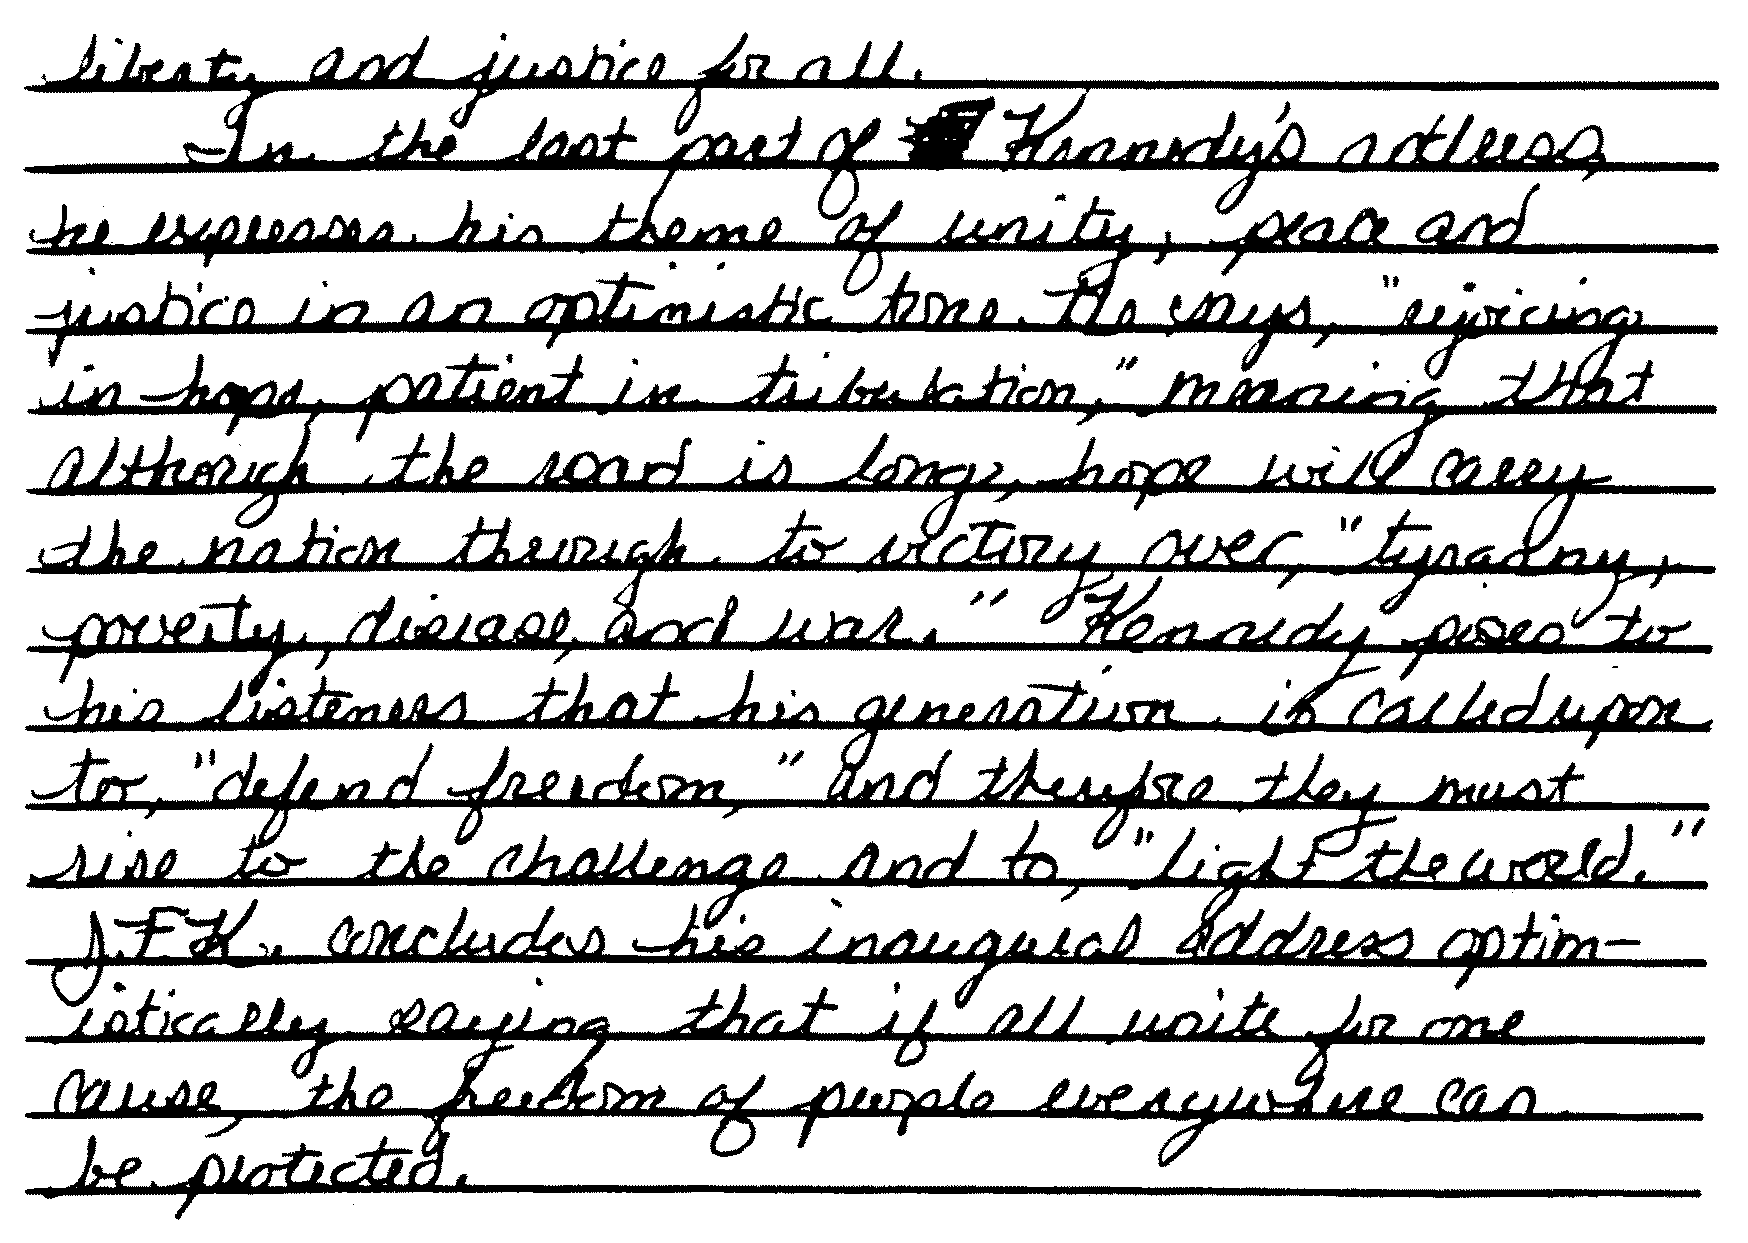 liberty and justice for all.
In the last part of Kennedy's address,
he expresses his theme of unity, peace and
justice in an optimistic tone. He says, "rejoicing
in hope, patient in tribulation," meaning that
although the road is long, hope will carry
the nation through to victory over, "tyranny,
poverty, disease, and war." Kennedy poses to
his listeners that his generation is called upon
to, "defend freedom," and therefore they must
rise to the challenge and to, "light the world."
J.F.K. concludes his inaugural address optim-
istically saying that if all unite for one
cause, the freedom of people everywhere can
be protected.